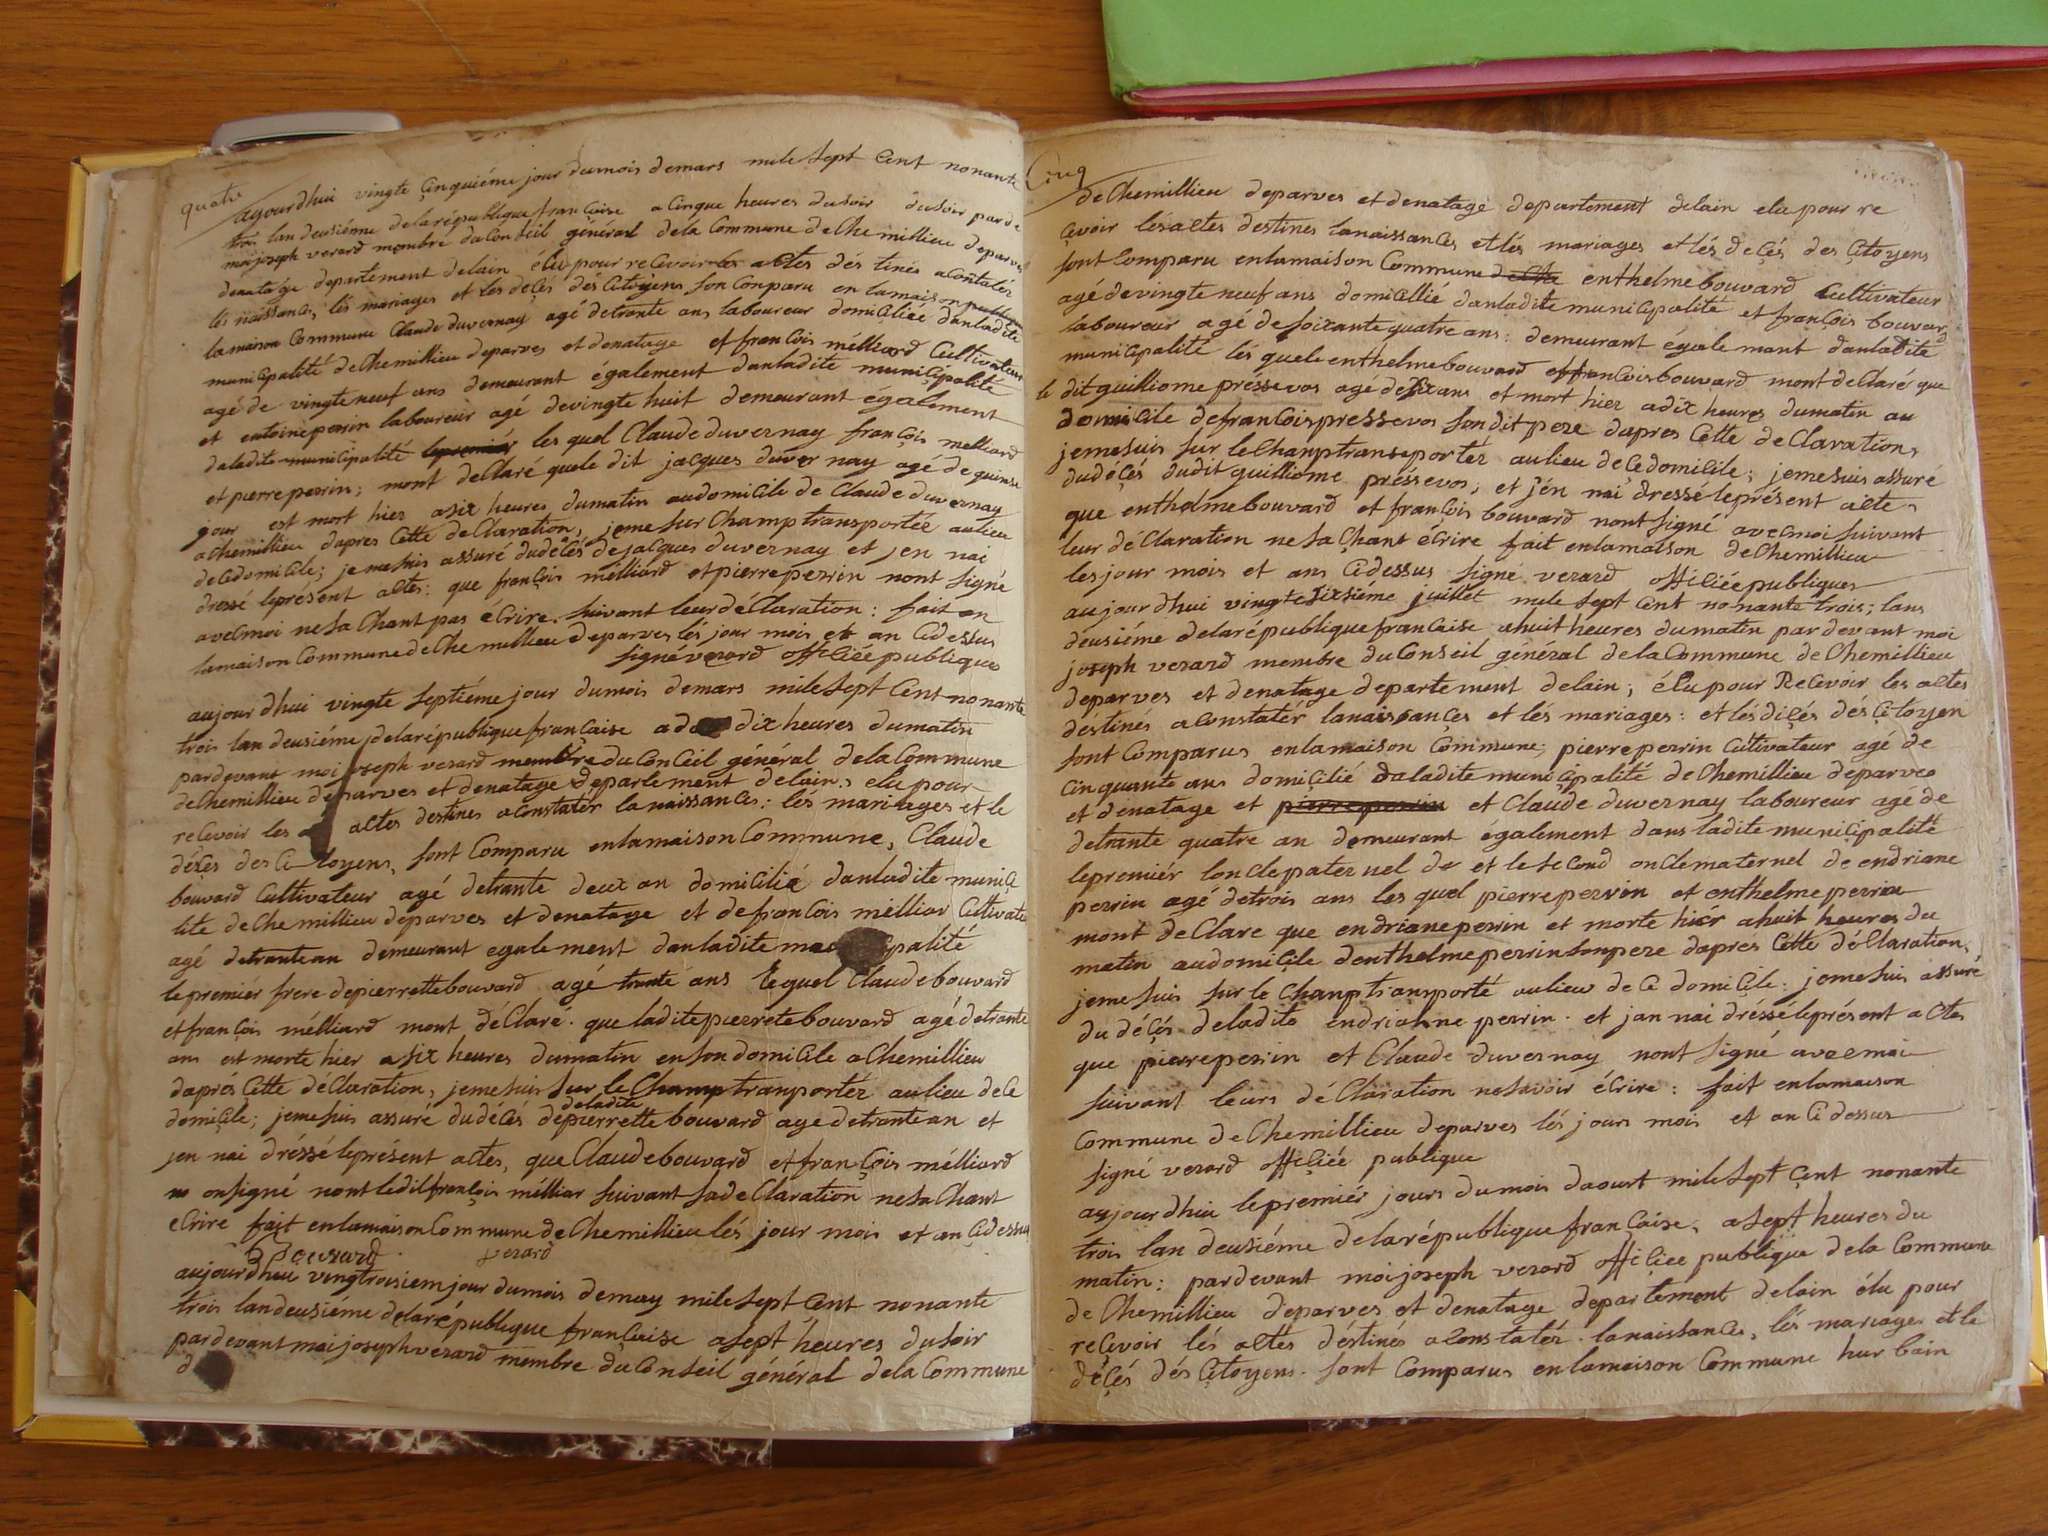 quatr
aujourdhui vingte çinquiéme jour dumois demars mile sept Cent nonante
troi lan deusiéme delarépublique françoise a Cinque heures dusoir dusoir par de
moi joseph verard membre duConseil général dela Commune deChemillieu deparves
denatage departement delain élu pour reCevoir les actes dés tinés aContatér
lés naissançes, lés mariages et les deçés désCitoyens son Conparu en lamaison
lamaison Commune Claude duvernay agé detrante ans laboureur domiçiliee danladite
muniCipalité deChemillieu deparves et denatage et franCois mélliard Cultivateur
agé de vingte neuf ans demeurant également danladite muniçipalité
et entoine perrin laboureur agé devingte huit demeurant également
daladite muniCipalité les quel Claude duvernay françois melliard
et pierre perrin; mont deClaré quele dit jacques duver nay agé de quinse
jour est mort hier asix heures dumatin audomiCile de Claude duvernay
aChemillieu dapres Cette deClaration, jeme sur Champ transportéz aulieu
deCedomiCile; jemesuis assuré dudéCés dejaCques duvernay et jen nai
dressé leprésent actes: que françois mélliard et pierre perrin nont signé
aveCmoi nesaChant pas éCrire suivant leurdéClaration: fait en
lamaison Commune deChe millieu deparves lés jour mois et an Cidessus
signé vérard offiCiée publique
aujourdhui vingte septiéme jour dumois demars mile sept Cent nonante
trois lan deusiéme delarépublique française a dix heures dumatin
pardevant moi joseph verard membre duConCeil général delaCommune
deChemillieu deparves et denatage departement delain, elu pour
reCevoir les actes destines aConstatér la naissançes: lés mariages et le
déCes desCitoyens, sont Comparu enlamaison Commune, Claude
bouvard Cultivateur agé detrante deux an domiCilié danladite muniçi
lité deChe millieu deparves et denatage et defranCois mélliar Cultivateu
agé detrante an demeurant egalement danladite palité
lepremier frere depierrette bouvard agé trante ans lequel Claude bouvard
et françois mélliard mont déClaré. que ladite pierrete bouvard agé detrante
ans est morte hier asix heures dumatin enson domiCile aChemillieu
daprés Cette déClaration, jemesuis sur le Champ tranportéz aulieu deCe
deladite
domiçile; jemesuis assuré dudéCés depierrette bouvard age detrante an et
jen nai dréssé leprésent actes, que Claude bouvard et françois mélliard
onsigné nont ledit françois mélliar suivant sadeClaration nesaChant
eCrire fait enlamaison Commune deChemillieu lés jour mois et an Cidessus
Bouvard verard
aujourdhui vingtroisiem jour dumois demay mile sept Cent nonante
trois lan deusiéme delarépublique franCaise asept heures dusoir
pardevant moi joseph verard membre duConseil général dela Commune
Cinq
deChemillieu deparves et denatage departement delain elu pour re
çevoir lés actes destines lanaissances et lés mariages et lés deçés des Çitoyens
sont Comparu enlamaison Commune enthelme bouvard Cultivateur
agé devingte neuf ans domiCillié danladite muniCipalité et françois bouvard
laboureur agé de soixante quatre ans: demeurant égale mant danladite
municipalité lés quele enthelme bouvard et franCois bouvard mont deClaré que
le dit guilliome pressevos age desix ans et mort hier adix heures dumatin au
domiCile defrançois pressevos son dit pere dapres Cette deClaration,
jemesuis sur leChamp transeportéz aulieu deCedomiCile; jemesuis assuré
dudéçés dudit guilliome préssevos; et j'en nai dressé leprésent acte,
que enthelme bouvard et françois bouvard nont signé aveCmoi suivant
leur déClaration nesaChant éCrire fait enlamaison deChemillieu
les jour mois et ans Cidessus signé verard offiCiée publiques
aujourdhui vingte sixsiéme juillet mile sept Cent nonante trois; lans
deusiéme delarépublique francaise ahuit heures dumatin pardevant moi
joseph verard membre duConseil général delaCommune deChemillieu
deparves et denatage departement delain; élu pour ReCevoir les actes
déstinés aConstatér lanaissançes et lés mariages: et lés diçés désÇitoyen
sont Comparus enlamaison Commune; pierre perrin Cultivateur agé de
Cinquante ans domiçilié daladite muniçipalité deChemillieu deparves
et denatage et pierre perrin et Claude duvernay laboureur agé de
detrante quatre an demeurant également dans ladite muniçipalité
lepremiér lonCle pater nuel de et le seCond onCle maternel de endriane
perrin agé detrois ans les quel pierre perrin et enthelme perrin
mont deClare que endriane perrin et morte hier ahuit heures du
matin audomiçile denthelme perrin sonpere dapres Cette déClaration,
jemesuis sur le Champ tranporté aulieu deCe domiçile: jemesuis assuré
du déçés deladite endrianne perrin. et jan nai dréssé léprésent actes
que pierre perrin et Claude duvernay nont signé avecmoi
suivant leurs déClaration nesavoir éCrire: fait enlamaison
Commune deChemillieu deparves lés jours mois et an Cidessus
signé verard offiçiée publique
aujourdhui lepremiér jours dumois daoust mile sept Çent nonante
trois lan deusiéme delarépublique française, asept heures du
matin: pardevant moi joseph verard offiCiee publique dela Commune
deChemillieu deparves et denatage departement delain élu pour
reCevoir lés actes déstinés aConstatér. lanaissançes, lés mariages et le
déçés désÇitoyens. sont Comparus enlamaison Commune hur bain